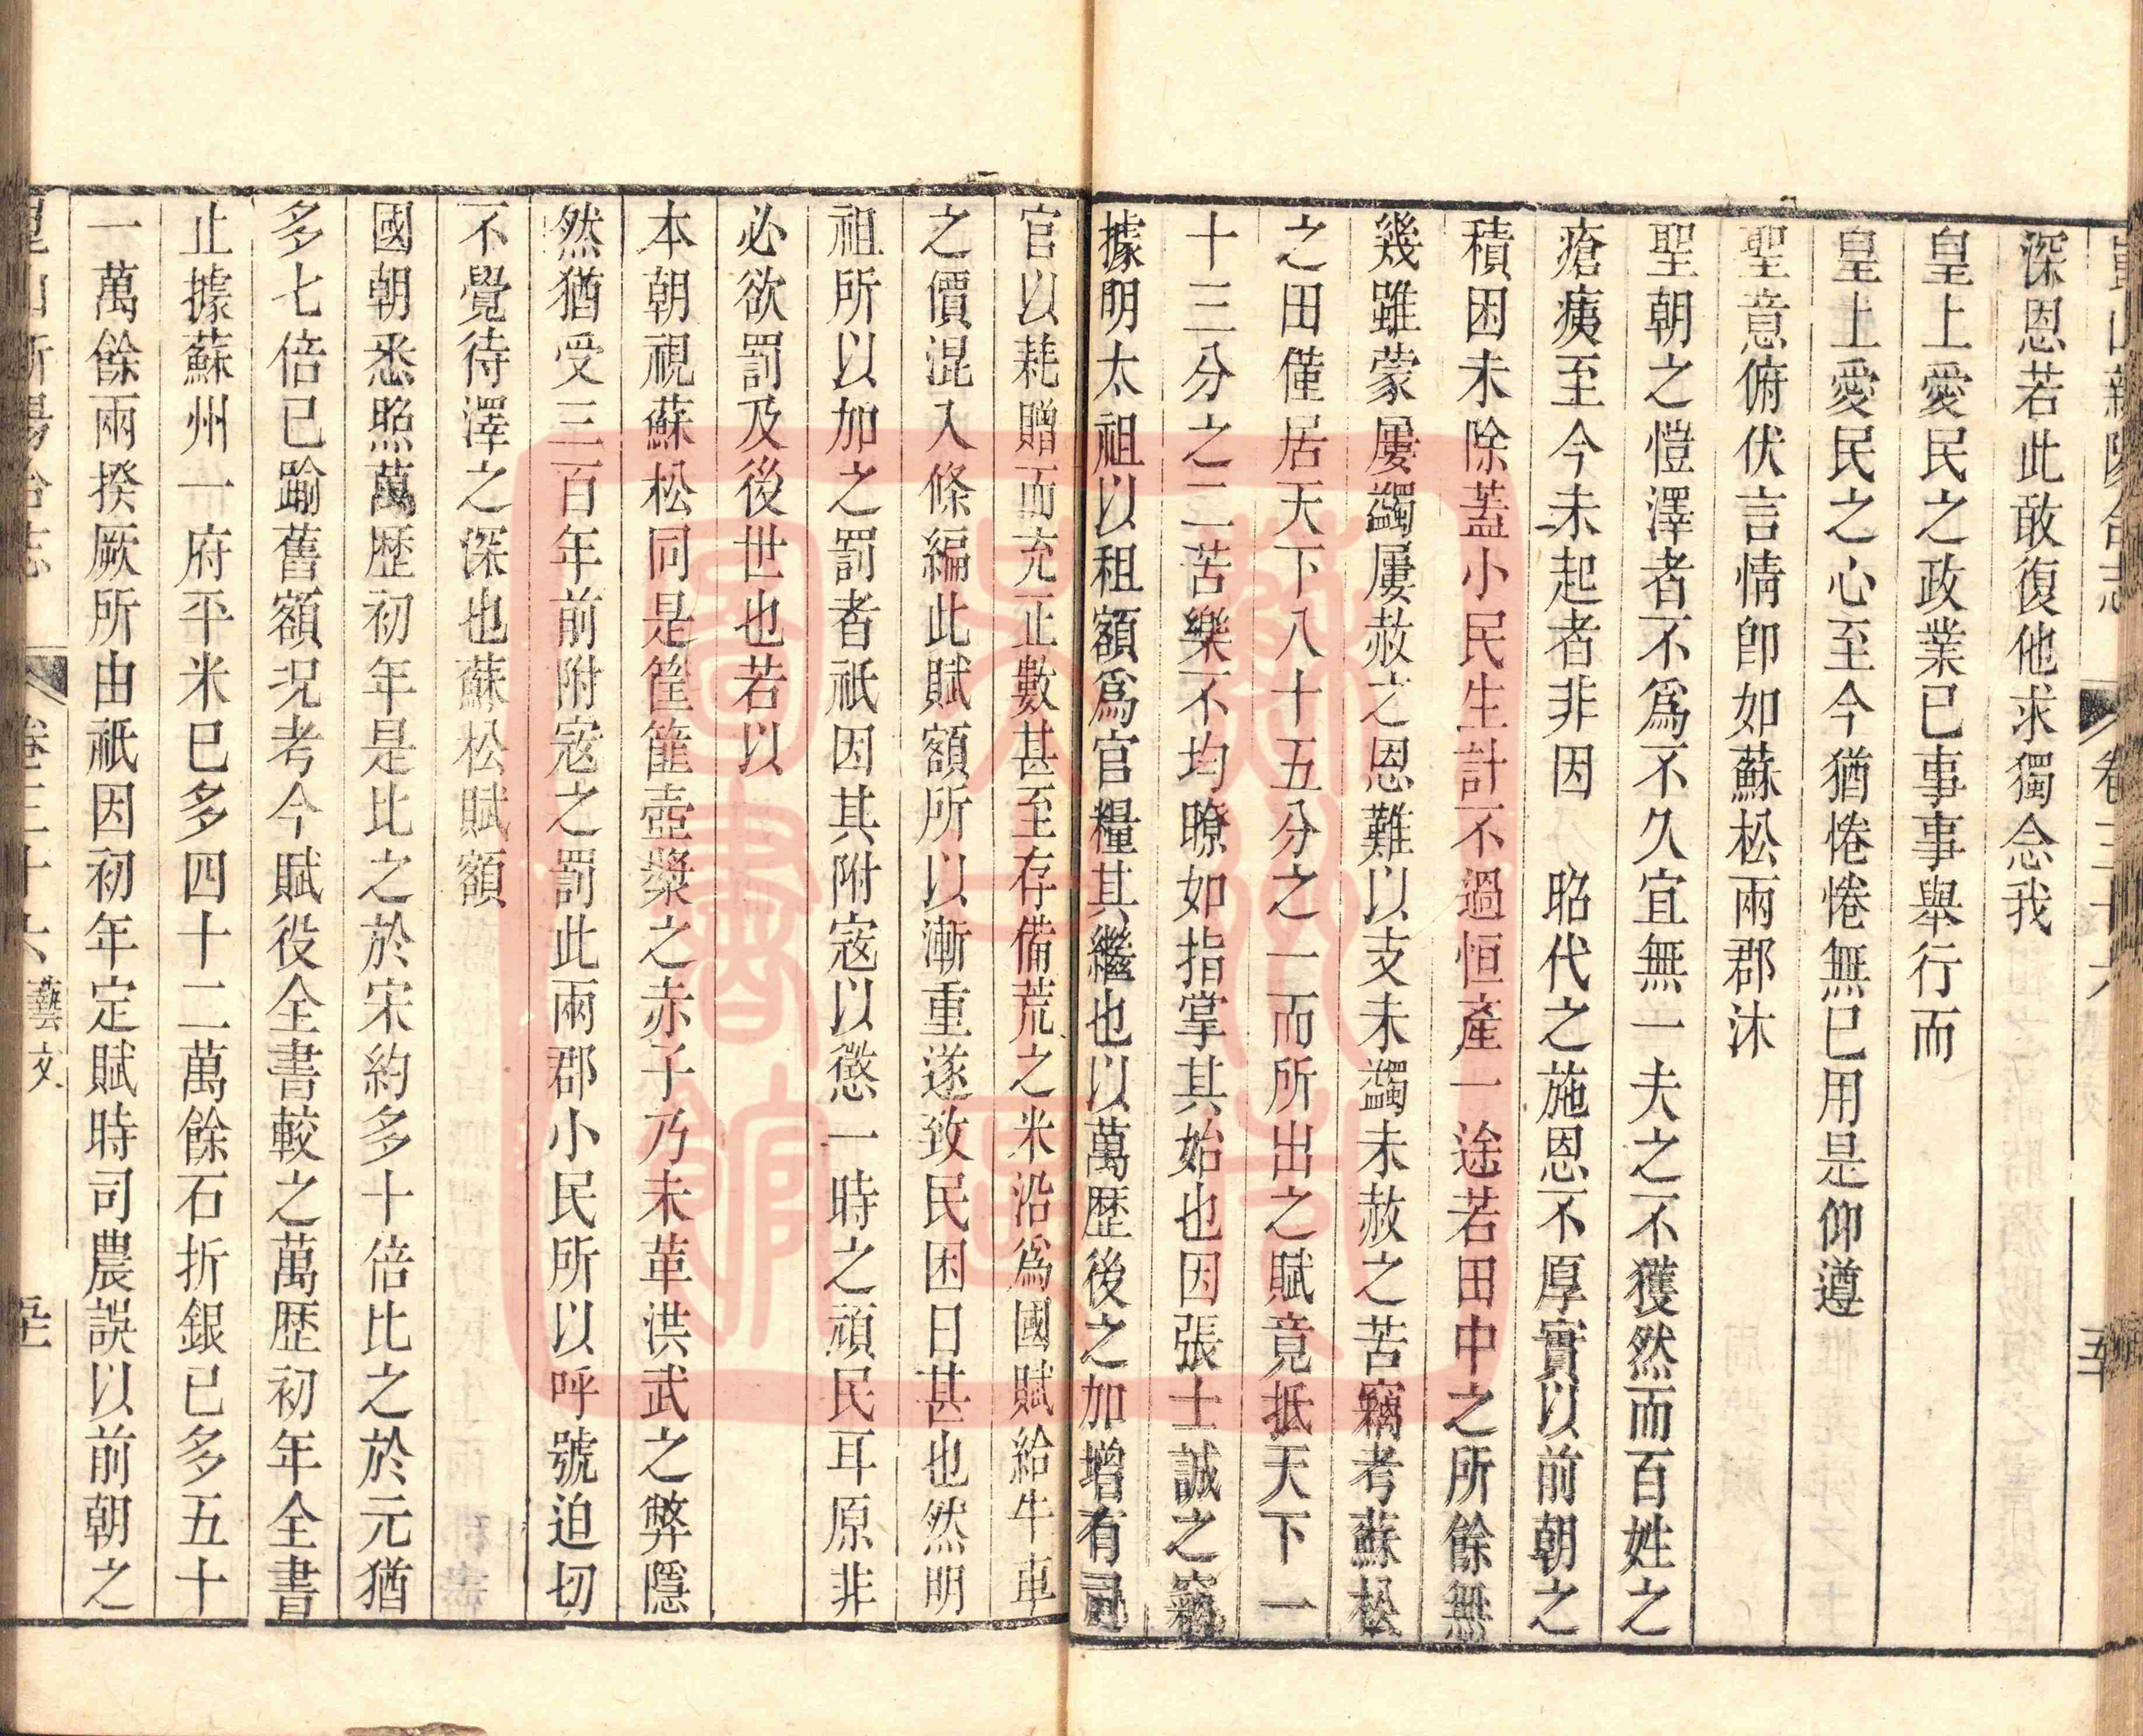 崑山新陽合志 卷三十六 五十
深恩若此敢復他求獨念我
皇上愛民之政業已事事舉行而
皇上愛民之心至今猶惓惓無已用是仰遵
聖意俯伏言情卽如蘇松兩郡沐
聖朝之愷澤者不爲不久宜無一夫之不獲然而百姓之
瘡痍至今未起者非因 昭代之施恩不厚實以前朝之
積困未除蓋小民生計不過恒產一途若田中之所餘無
幾雖蒙屢蠲屢赦之恩難以支未蠲未赦之苦竊考蘇松
之田僅居天下八十五分之一而所出之賦竟抵天下一
十三分之二苦樂不均瞭如指掌其始也因張士誠之竊
據明太祖以租額爲官糧其繼也以萬歷後之加增有司
官以耗贈而充正數甚至存備荒之米沿爲國賦給牛車
之價混入條編此賦額所以漸重遂致民困日甚也然明
祖所以加之罰者祇因其附寇以懲一時之頑民耳原非
必欲罰及後世也若以
本朝視蘇松同是筐篚壺漿之赤子乃未革洪武之弊隱
然猶受三百年前附寇之罰此兩郡小民所以呼號迫切
不覺待澤之深也蘇松賦額
國朝悉照萬歷初年是比之於宋約多十倍比之於元猶
多七倍已踰舊額況考今賦役全書較之萬歷初年全書
止據蘇州一府平米已多四十二萬餘石折銀已多五十
一萬餘兩揆厥所由祇因初年定賦時司農誤以前朝之
崑山新陽合志 卷三十六 藝文 五十一
蘇州市立圖書館